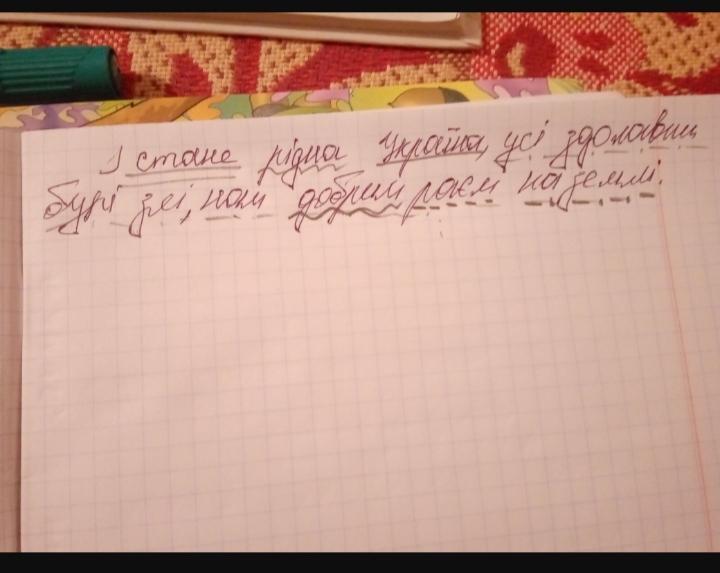 І стане рідна Україна, усі здолавши
бурі злі, нам добрим раєм на землі.